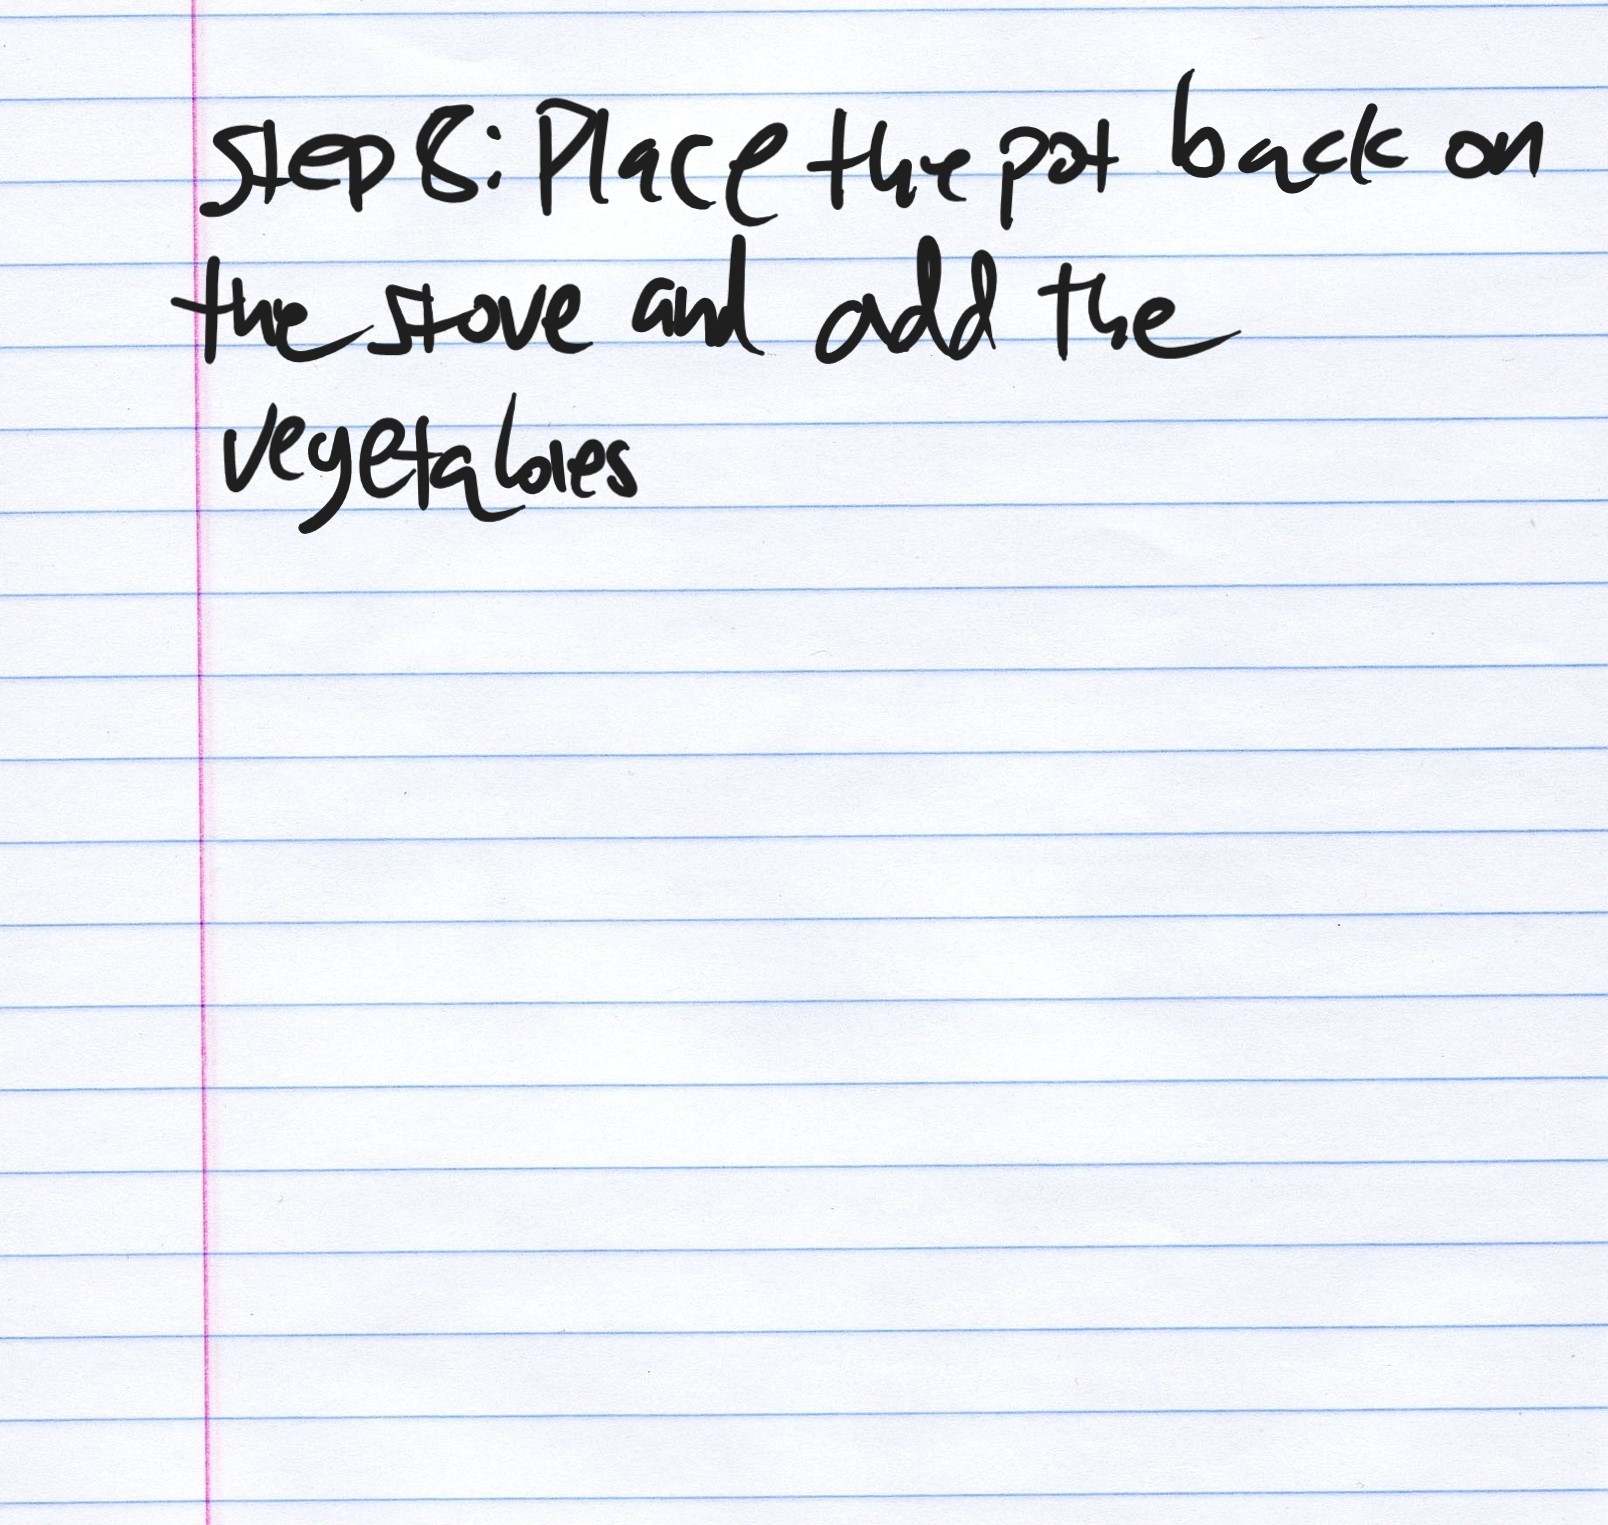 Step 8: Place the pot back on
the stove and add the
vegetables